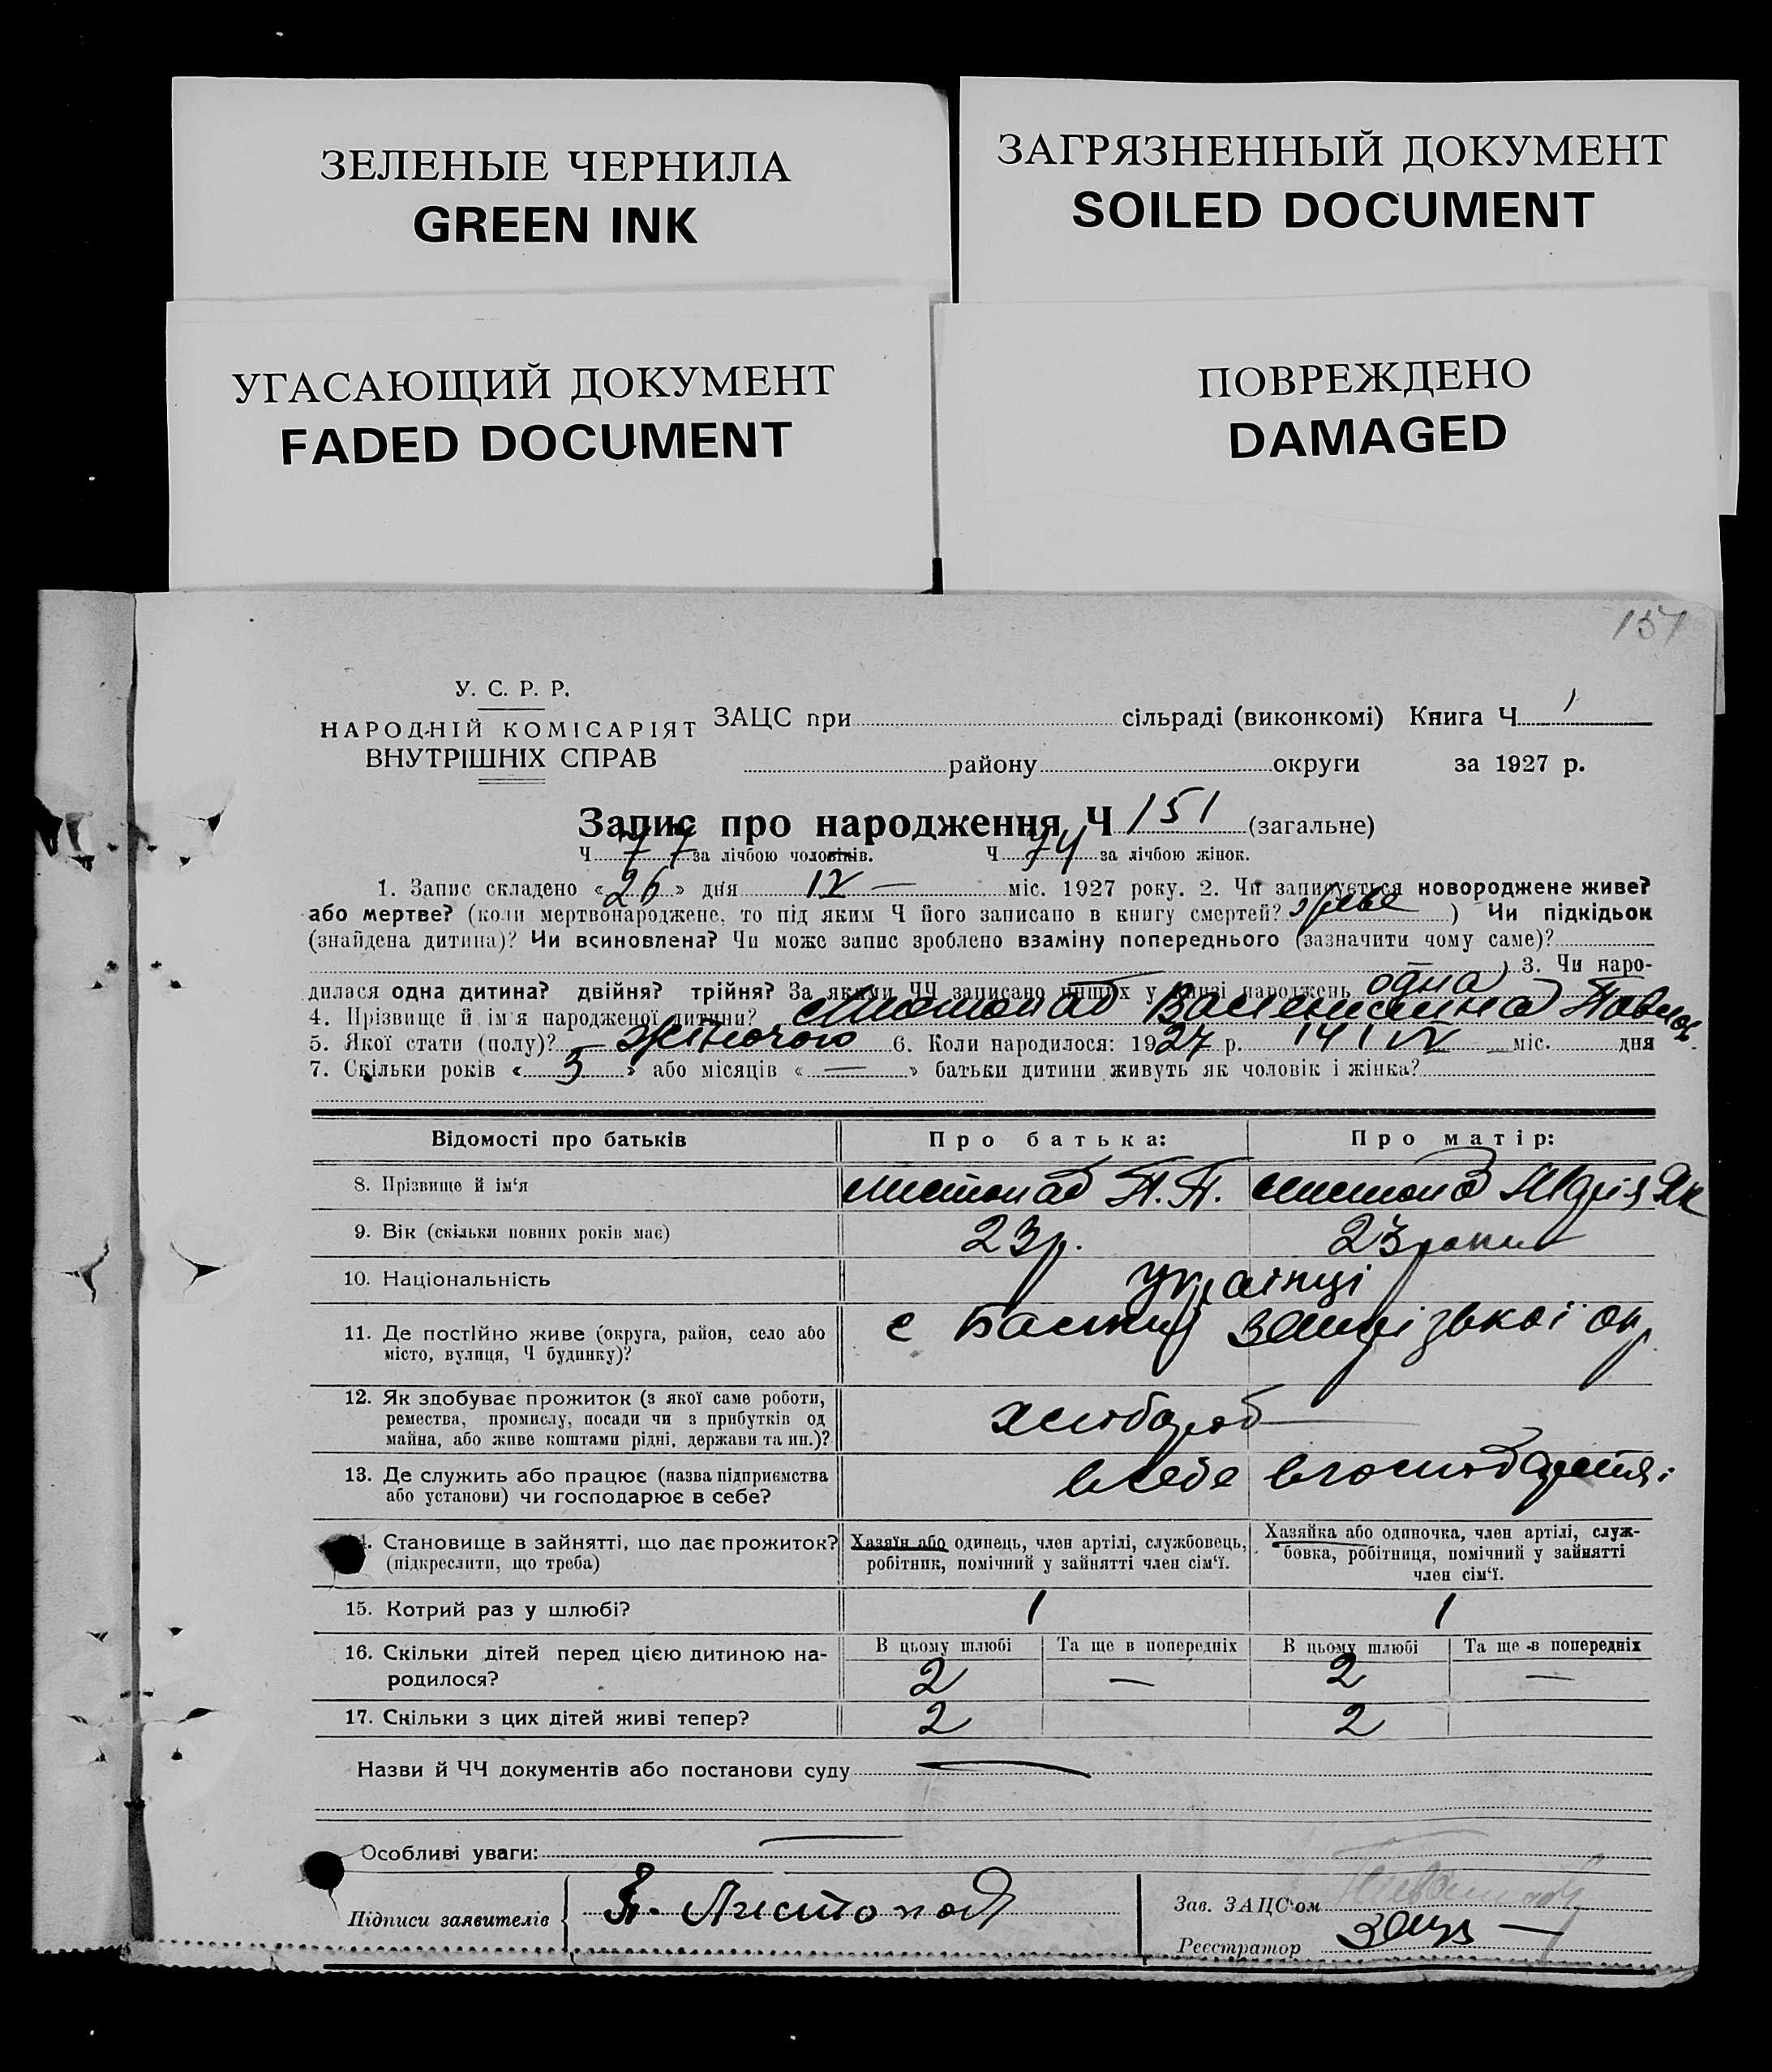 ЗЕЛЕНЫЕ ЧЕРНИЛА
GREEN INK
ЗАГРЯЗНЕННЫЙ ДОКУМЕНТ
SOILED DOCUMENT
УГАСАЮЩИЙ ДОКУМЕНТ
FADED DOCUMENT
ПОВРЕЖДЕНО
DAMAGED
151
У. С. Р. Р.
НАРОДНІЙ КОМІСАРІЯТ
ВНУТРІШНІХ СПРАВ
ЗАЦС при сільраді (виконкомі) Книга Ч 1
району округи за 1927 р.
Запис про народження Ч 151 (загальне)
Ч 77 за лічбою чоловіків. Ч 74 за лічбою жінок.
1. Запис складено « 26 » дня IV — міс. 1927 року. 2. Чи записується новороджене живе?
або мертве? (коли мертвонароджене, то під яким Ч його записано в книгу смертей? живе ) Чи підкідьок
(знайдена дитина)? Чи всиновлена? Чи може запис зроблено взаміну попереднього (зазначити чому саме)?
) 3. Чи наро-
дилася одна дитина? двійня? трійня? За якими ЧЧ записано инших у книзі народжень одна
4. Прізвище й ім'я народженої дитини? Листопад Валентина Павлов.
5. Якої стати (полу)? Жіночого 6. Коли народилося: 1927 р. 14 IV міс. дня
7. Скільки років « 5 » або місяців « — » батьки дитини живуть як чоловік і жінка?
Відомості про батьків
Про батька:
Про матір:
8. Прізвище й ім'я
Листопад П. П.
Листопад Марія Як
9. Вік (скільки повних років має)
23 р.
23 роки
10. Національність
українці
11. Де постійно живе (округа, район, село або
місто, вулиця, Ч будинку)?
с Запорізької окр.
12. Як здобуває прожиток (з якої саме роботи,
ремества, промислу, посади чи з прибутків од
майна, або живе коштами рідні, держави та ин.)?
хлібороб
13. Де служить або працює (назва підприємства
або установи) чи господарює в себе?
в себе в господарстві
14. Становище в зайнятті, що дає прожиток?
(підкреслити, що треба)
Хазяїн або одинець, член артілі, службовець,
робітник, помічний у зайнятті член сім'ї.
Хазяйка або одиночка, член артілі, служ-
бовка, робітниця, помічний у зайнятті
член сім'ї.
15. Котрий раз у шлюбі?
1
1
16. Скільки дітей перед цією дитиною на-
родилося?
В цьому шлюбі
Та ще в попередніх
В цьому шлюбі
Та ще в попередніх
2
—
2
—
17. Скільки з цих дітей живі тепер?
2
2
Назви й ЧЧ документів або постанови суду —
Особливі уваги: —
Підписи заявителів
П. Листопад
Зав. ЗАЦС'ом
Реєстратор